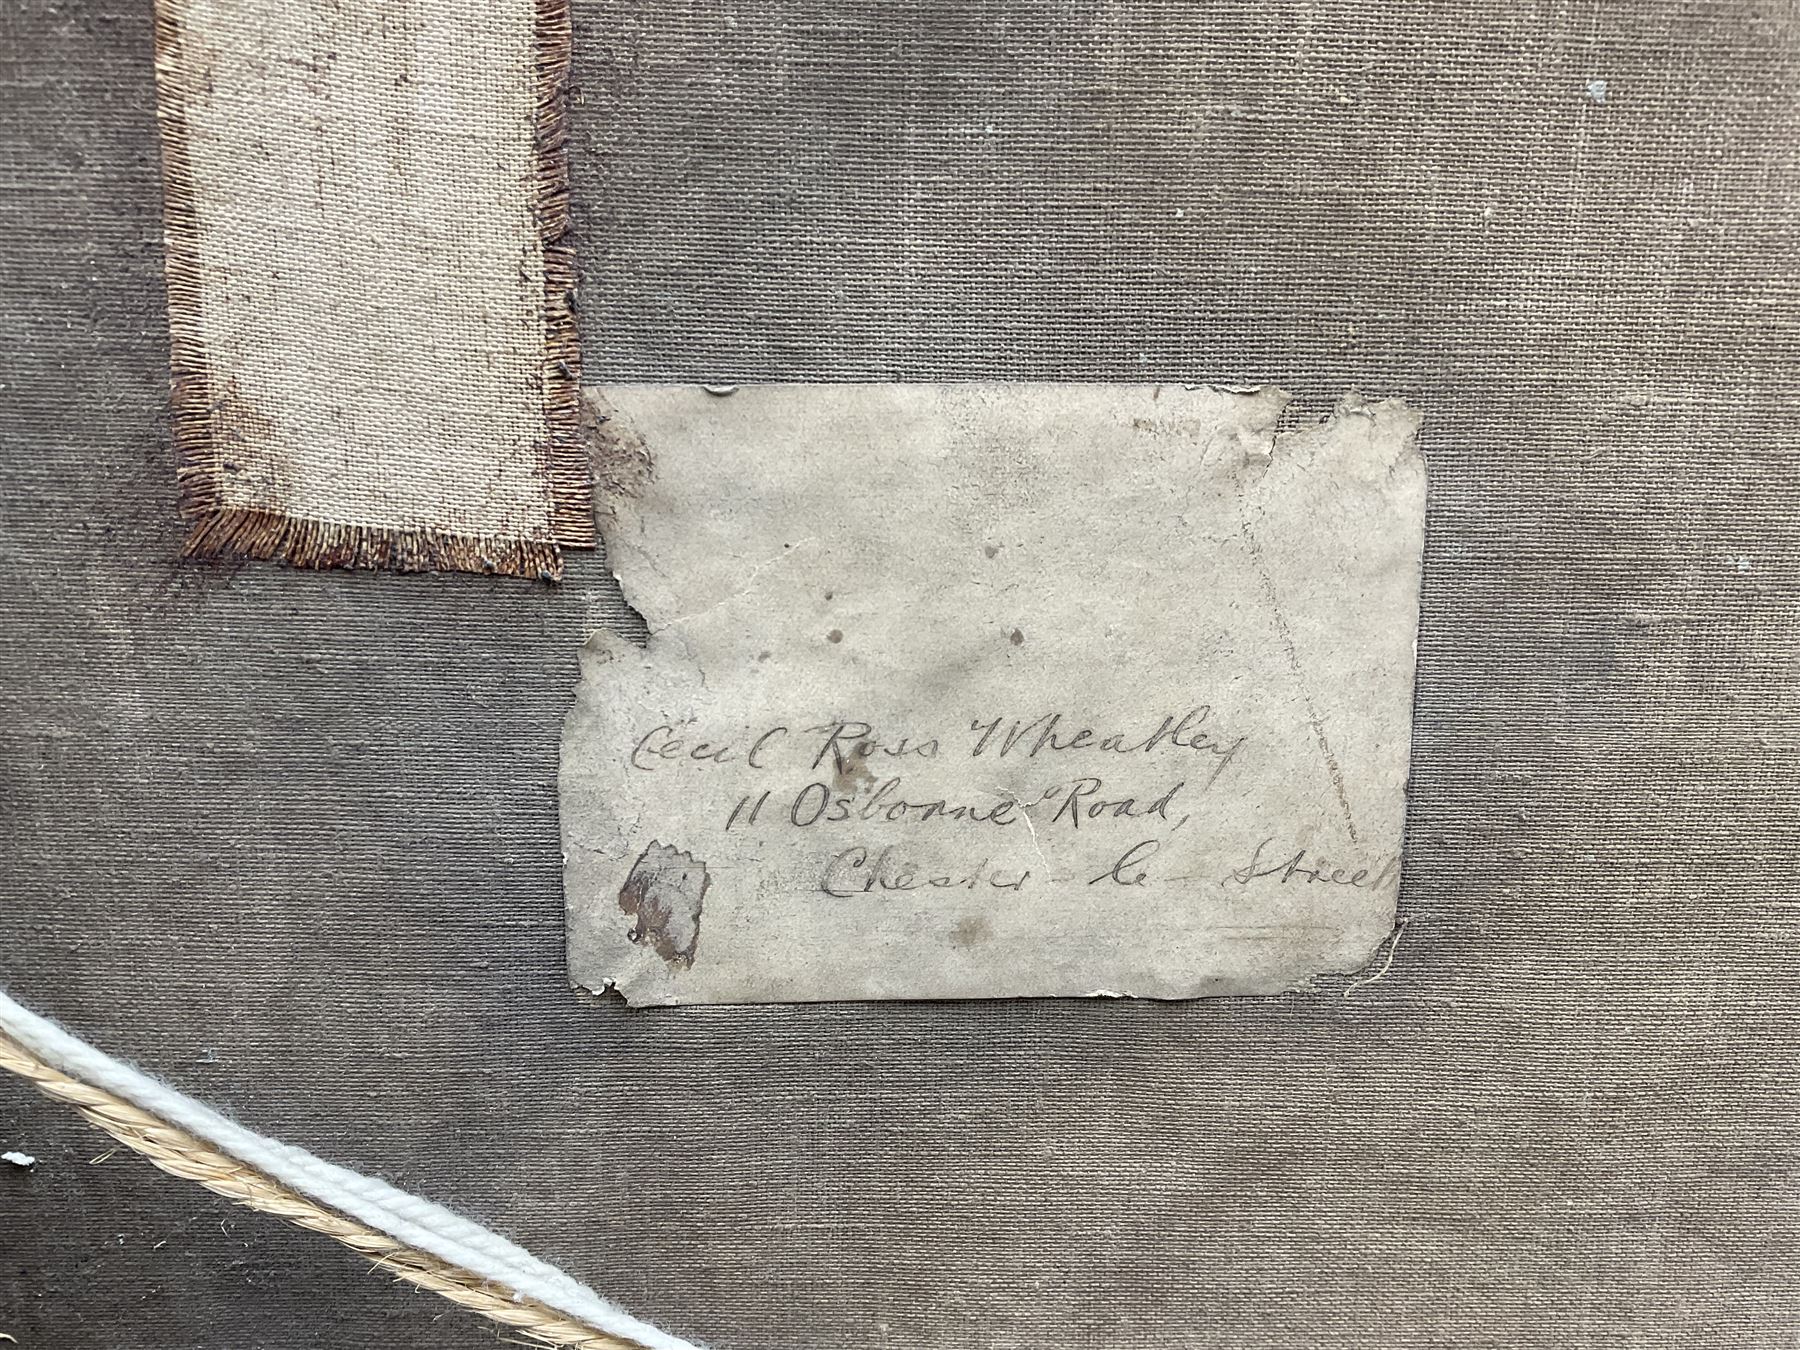 Cecil Ross Wheatley
11 Osborne Road,
Chester - le - Street